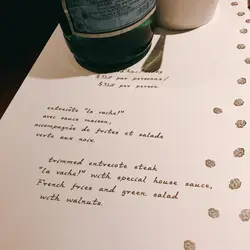 per personne/
per person
entrecôte "la vache!"
avec sauce maison,
accompagnée de frites et salade
verte aux noix.
trimmed entrecote steak
"la vache!" with special house sauce,
French fries and green salad
with walnuts.